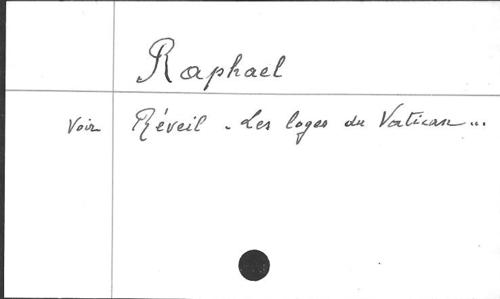 Raphael
Voir Réveil - Les loges du Vatican...